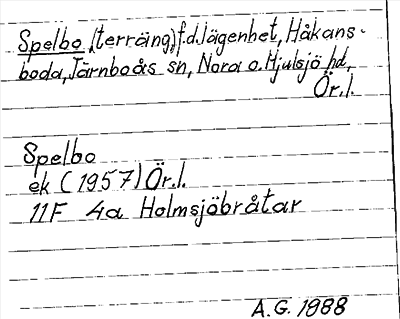 Spelbo (terräng), f.d. lägenhet, Håkans-
boda, Järnboås sn, Nora o. Hjulsjö hd,
Ör.l.
Spelbo
ek (1957) Ör.l.
11F 4a Holmsjöbråtar
A.G. 1988